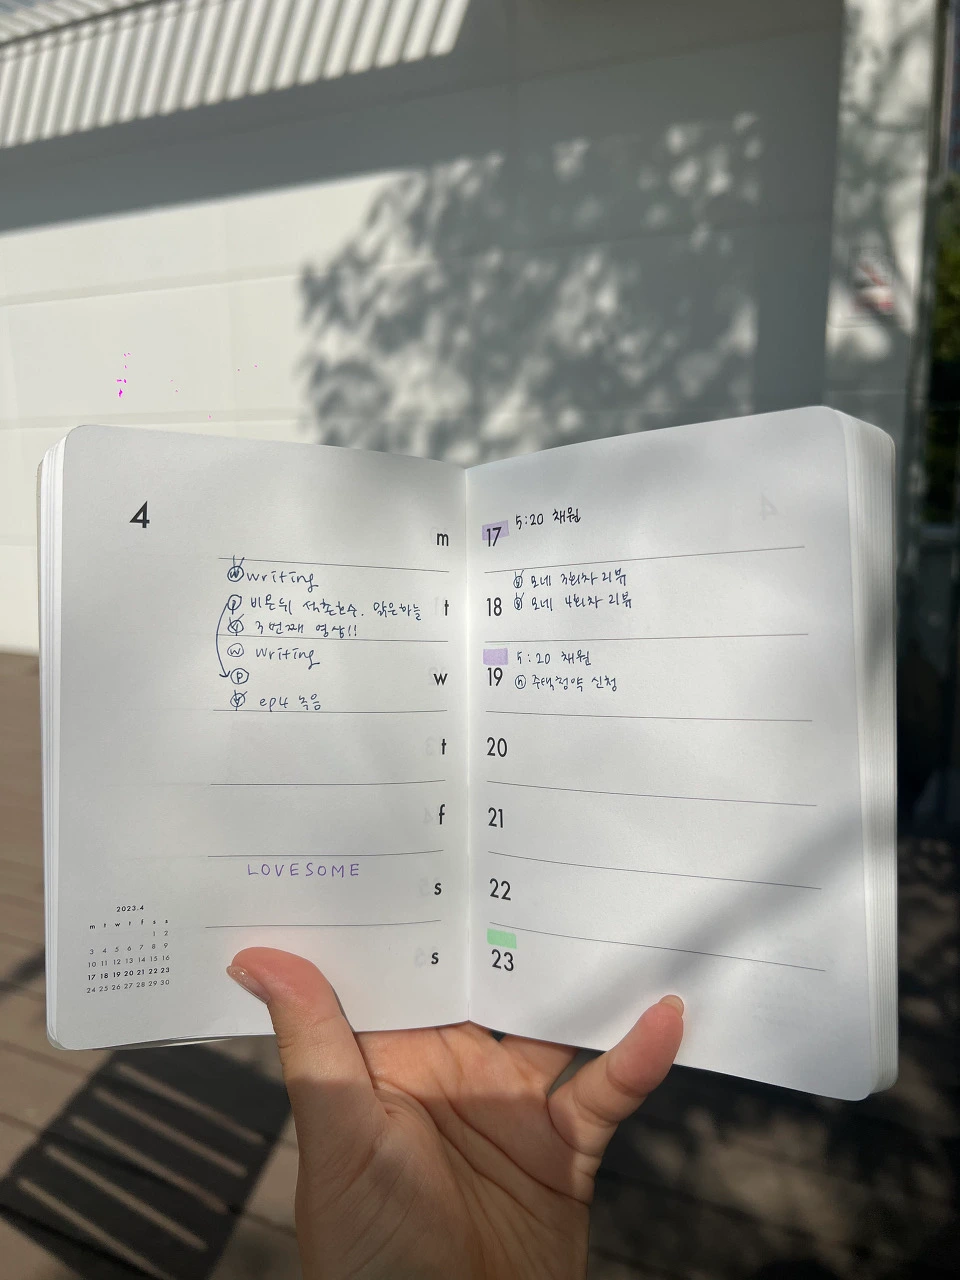 4
m
ⓦ writing
ⓟ 비온뒤 석촌호수. 맑은하늘
ⓥ 3번째 영상!!
t
ⓦ writing
ⓟ
ⓥ ep4 녹음
w
t
f
LOVESOME
s
s
2023.4
m t w t f s s
1 2
3 4 5 6 7 8 9
10 11 12 13 14 15 16
17 18 19 20 21 22 23
24 25 26 27 28 29 30
17
5:20 채원
18
모네 3회차 리뷰
모네 4회차 리뷰
19
5:20 채원
ⓗ 주택청약 신청
20
21
22
23